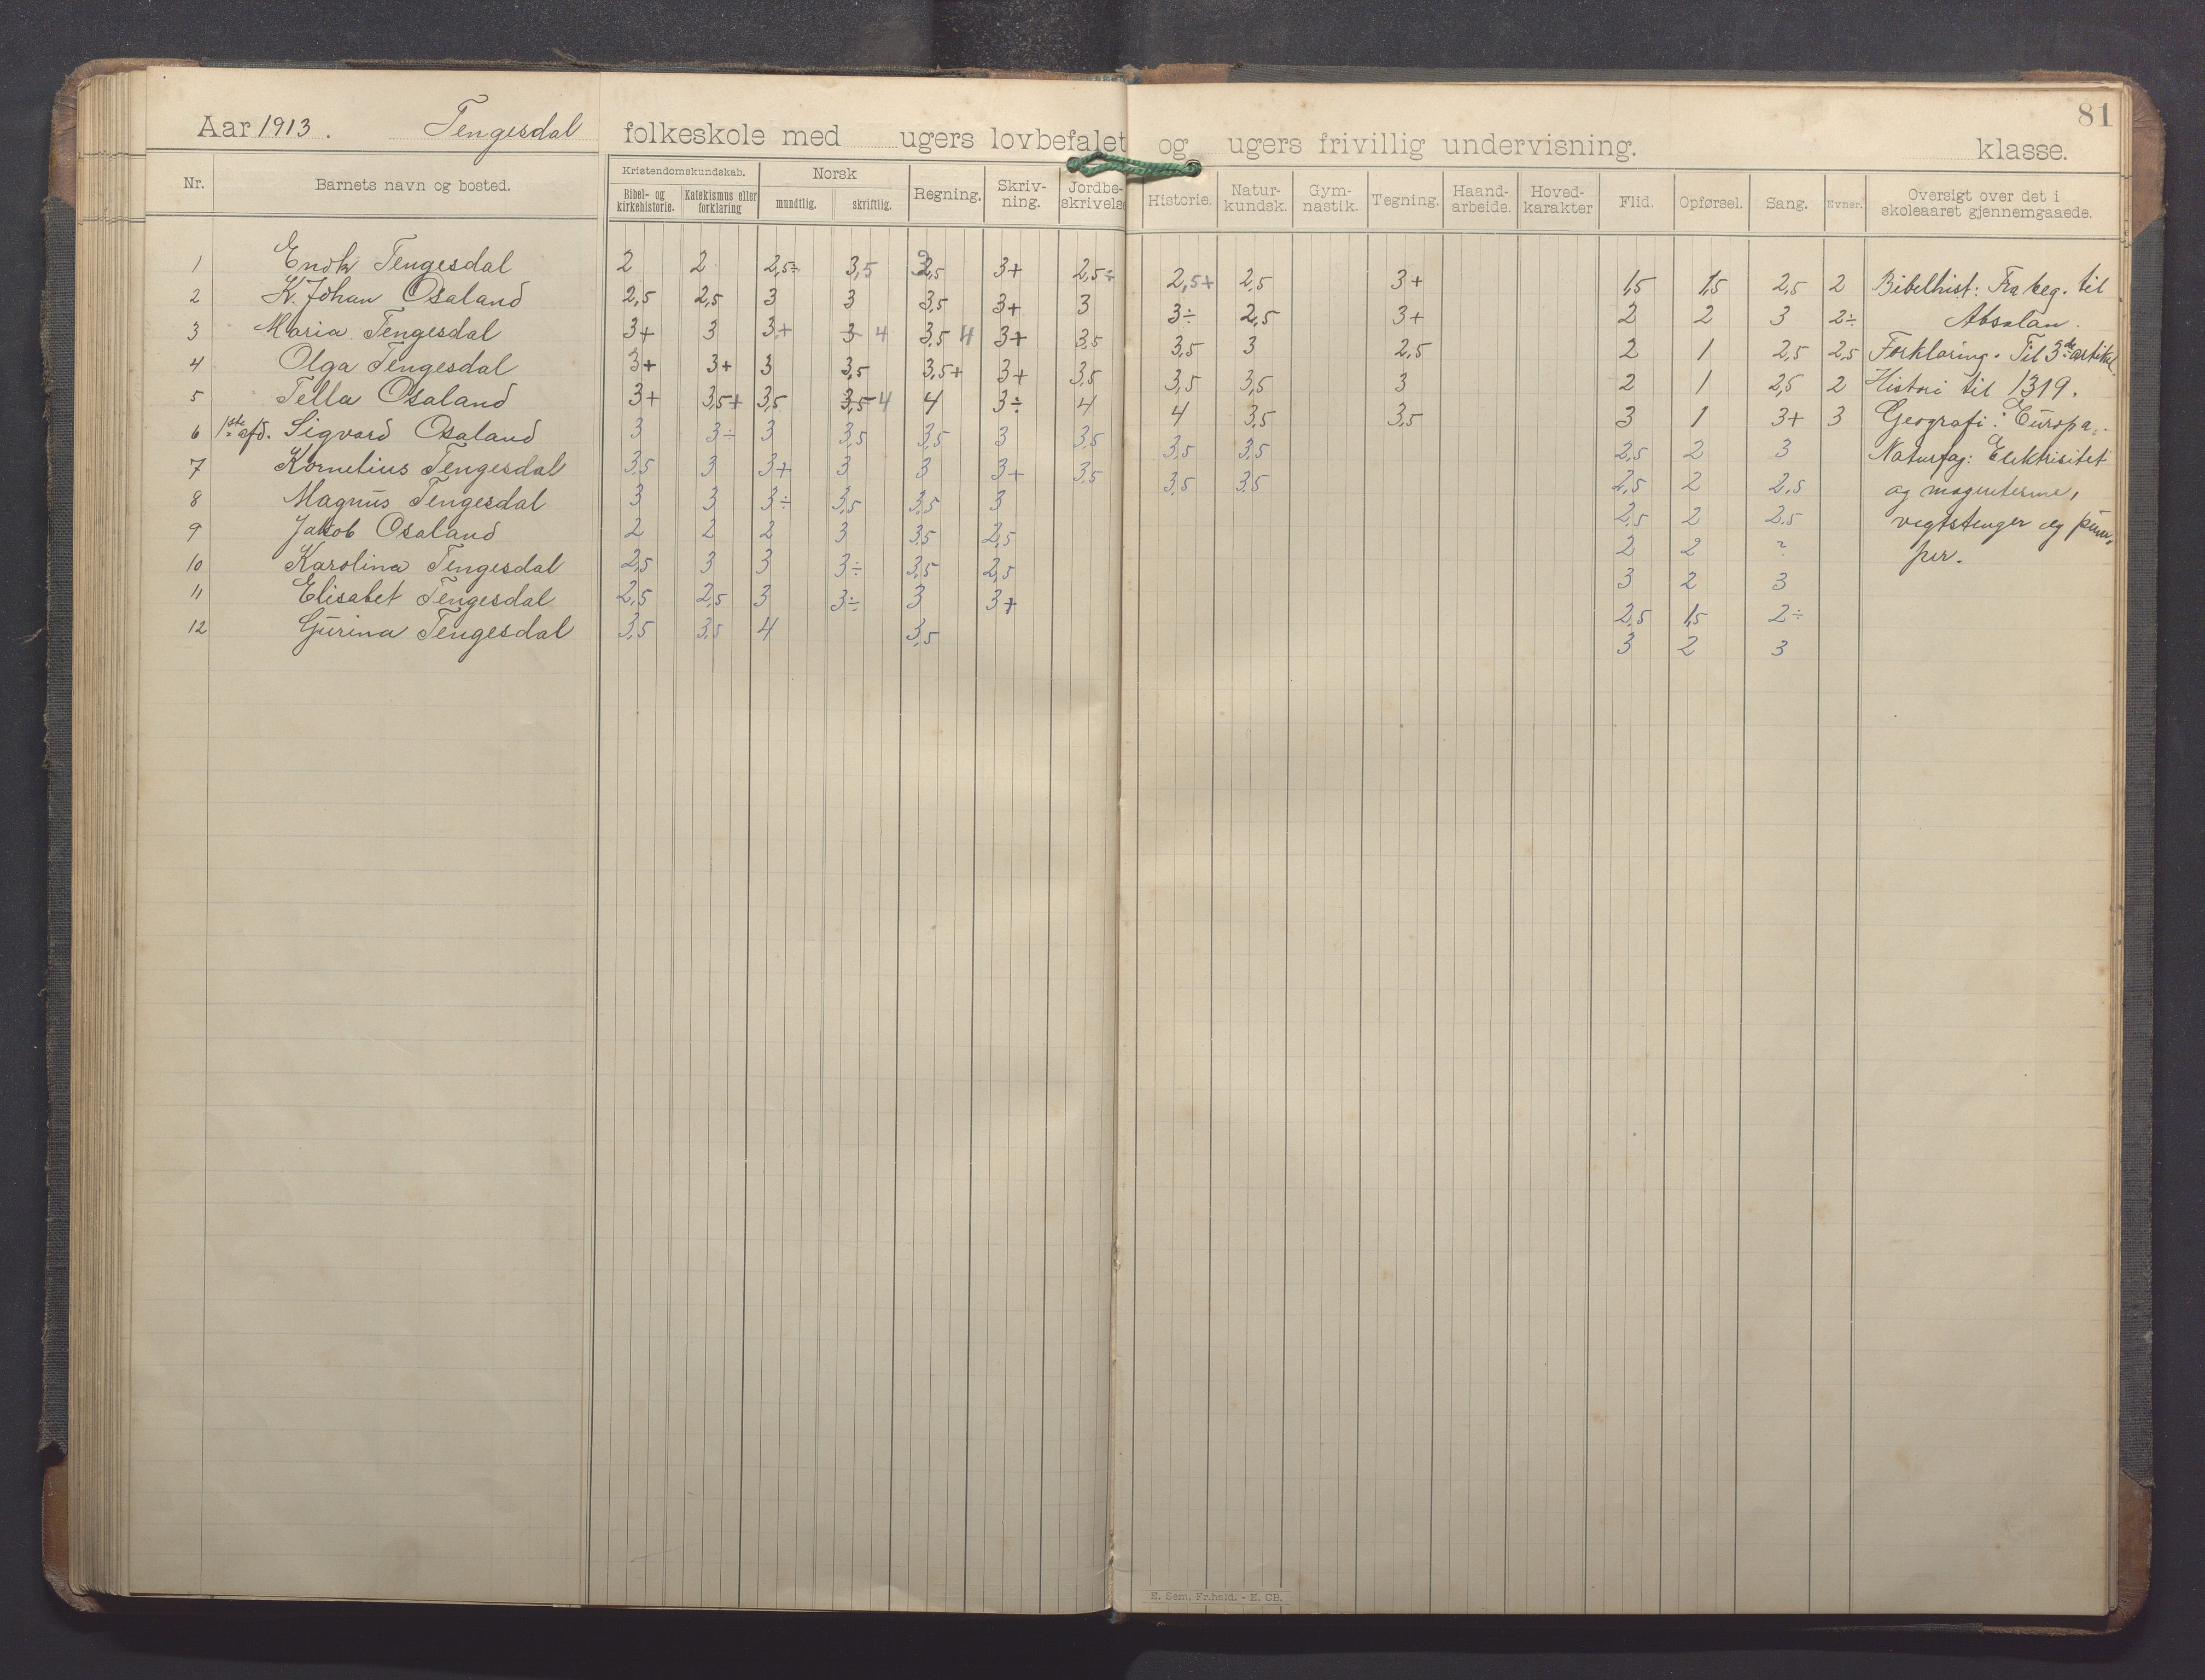 81
Aar 1913. Tengesdal folkeskole med ugers lovbefalet og ugers frivillig undervisning. klasse.
Nr. Barnets navn og bosted. Kristendomskundskab. Bibel- og kirkehistorie. Katekismus eller forklaring Norsk mundtlig. skriftlig. Regning. Skriv-ning. Jordbe-skrivelse Historie. Natur-kundsk. Gym-nastik. Tegning. Haand-arbeide. Hoved-karakter Flid. Opførsel. Sang. Evner. Oversigt over det i skoleaaret gjennemgaaede.
1 Enok Tengesdal 2 2 2,5÷ 3,5 2,5 3+ 2,5÷ 2,5+ 2,5 3+ 1,5 1,5 2,5 2 Bibelhist: Fra beg. til
2 K. Johan Osaland 2,5 2,5 3 3 3,5 3+ 3 3÷ 2,5 3+ 2 2 3 2÷ Absalan.
3 Maria Tengesdal 3+ 3 3+ 3 4 3,5 4 3+ 3,5 3,5 3 2,5 2 1 2,5 2,5 Forklaring. Til 3de artikel
4 Olga Tengesdal 3+ 3+ 3 3,5 3,5+ 3+ 3,5 3,5 3,5 3 2 1 2,5 2 Histori til 1319.
5 Tella Osaland 3+ 3,5+ 3,5 3,5 4 4 3÷ 4 4 3,5 3,5 3 1 3+ 3 Geografi: Europa.
6 1ste afd. Sigvard Osaland 3 3÷ 3 3,5 3,5 3 3,5 3,5 3,5 2,5 2 3 Naturfag: Elektrisitet
7 Kornelius Tengesdal 3,5 3 3+ 3 3 3+ 3,5 3,5 3,5 2,5 2 2,5 og magnetisme,
8 Magnus Tengesdal 3 3 3÷ 3,5 3,5 3 2,5 2 2,5 vegtstenger og pum-
9 Jakob Osaland 2 2 2 3 3,5 2,5 2 2 ? per.
10 Karolina Tengesdal 2,5 3 3 3÷ 3,5 2,5 3 2 3
11 Elisabet Tengesdal 2,5 2,5 3 3÷ 3 3+ 2,5 1,5 2÷
12 Gurina Tengesdal 3,5 3,5 4 3,5 3 2 3
E. Sem, Fr.hald. - H. CB.